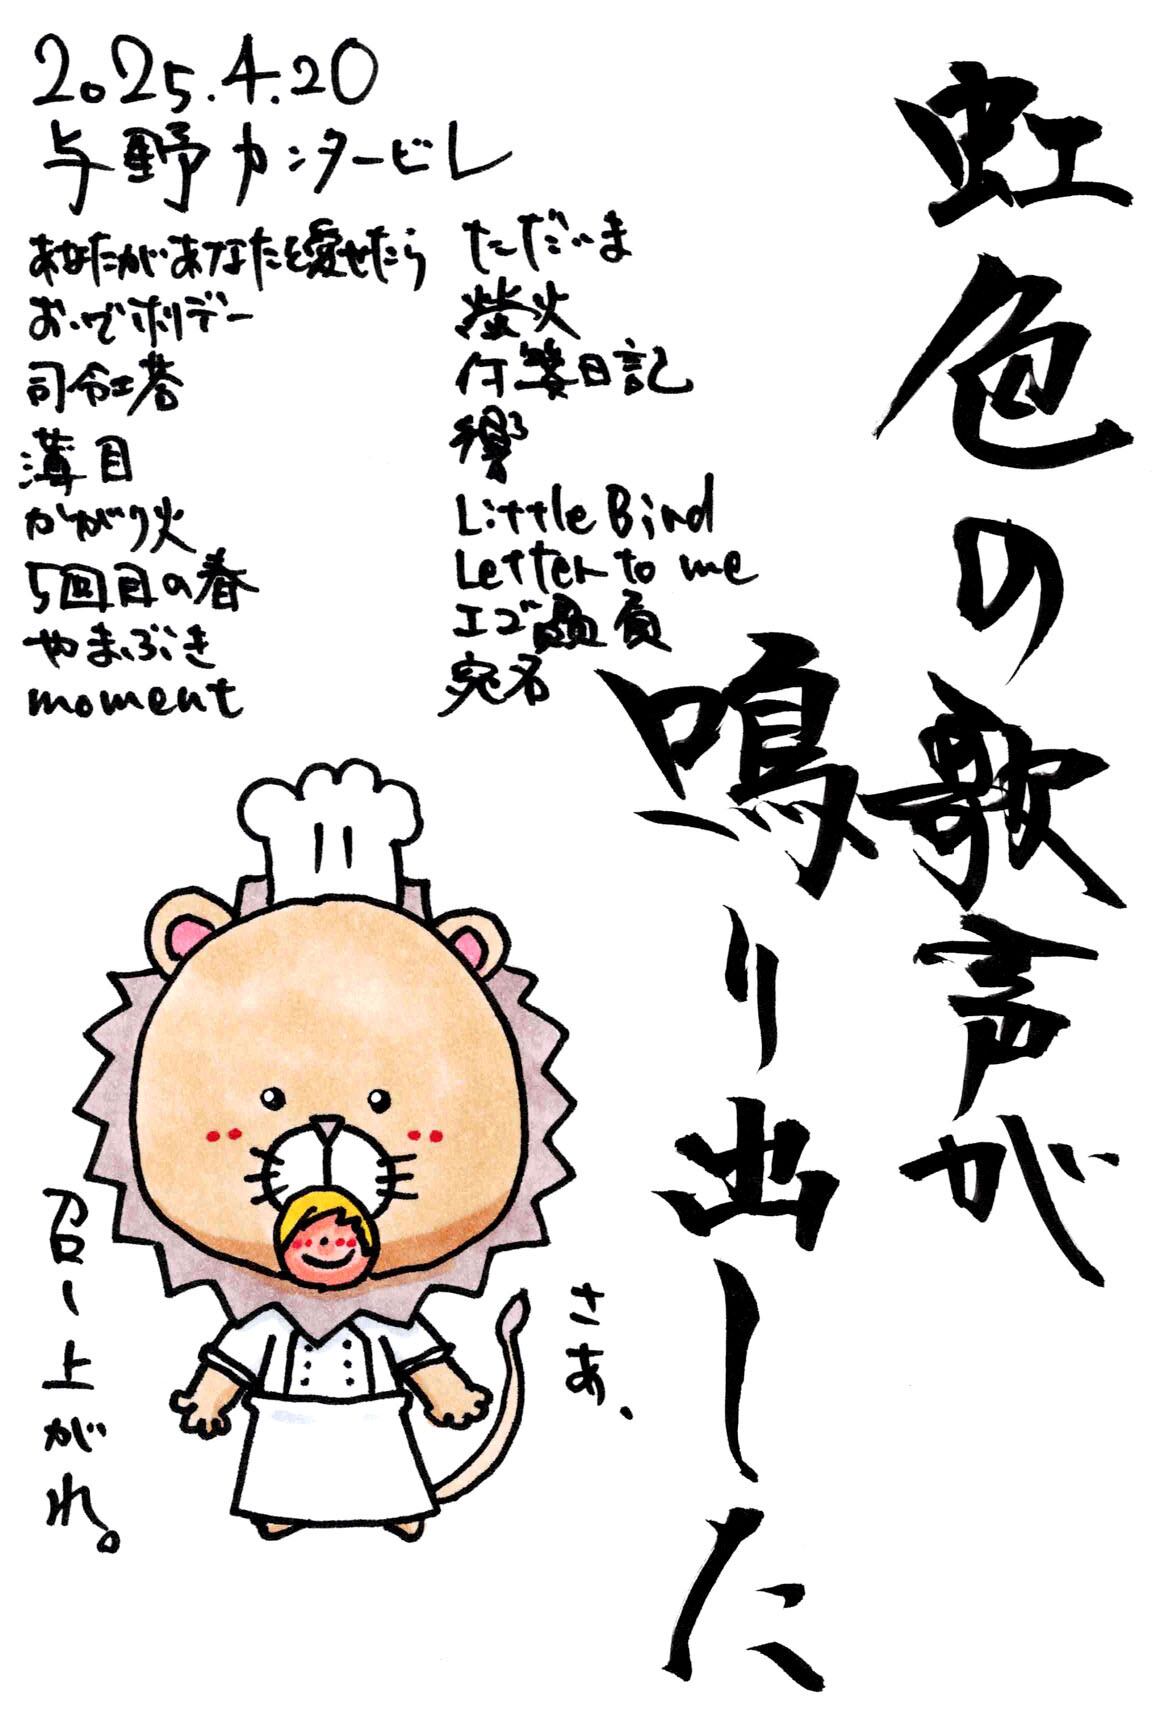 2025.4.20
与野カンタービレ
あなたがあなたを愛せたら
おいでホリデー
司令塔
溝目
かがり火
5回目の春
やまぶき
moment
ただいま
螢火
付箋日記
響
Little Bird
Letter to me
エゴ贔屓
宛名
虹色の歌声が
鳴り出した
さあ、
召し上がれ。